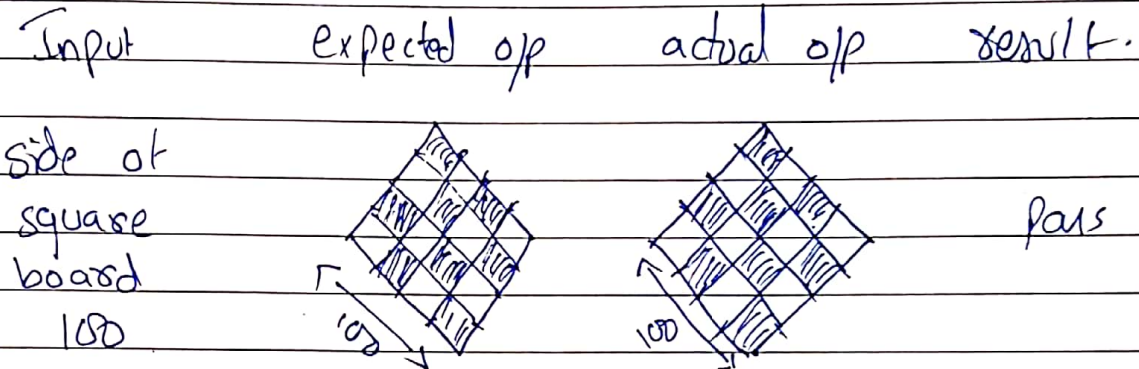 Input expected o/p actual o/p result.
side of
square pass
board
100 100 100